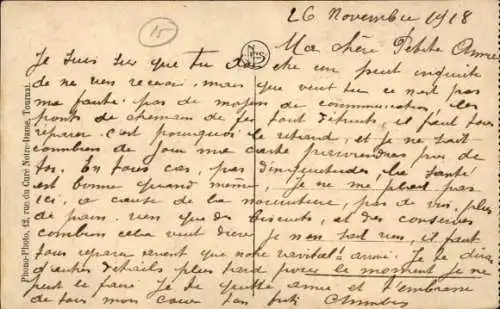 26 Novembre 1918
15
Ma chère Petite Amie
Je suis sur que tu dois être un peut inquite
de ne rien recevoir, mais que veut tu ce n'est pas
ma faute. pas de moyen de communication, les
ponts de chemain de fer tout détruits, il faut tous
réparer. c'est pourquoi le retard, et je ne sait
combien de jour ma carte parviendras près de
toi. En tous cas, pas d'inquiétudes, la santé
est bonne quand même, je ne me plait pas
ici, a cause de la nourriture, pas de vin, plus
de pain. rien que des biscuits, et des conserves
combien cela veut durer je n'en sait rien, il faut
tous réparer avant que notre ravitail arrive. Je te dirai
d'autres détails plus tard pour le moment je ne
peut le faire. Je te quitte amie et t'embrasse
de tous mon cœur ton petit
Phono-Photo, 12, rue du Curé Notre-Dame, Tournai.